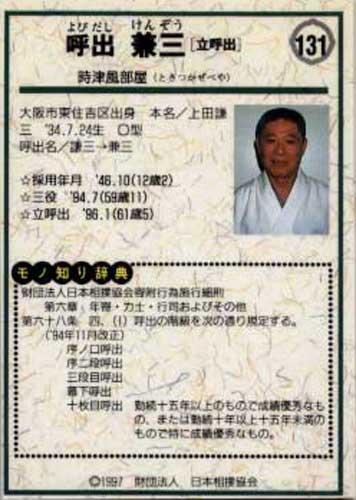 よびだし けんぞう
呼出 兼三 [立呼出] 131
時津風部屋(ときつかぜべや)
大阪市東住吉区出身 本名/上田謙
三 '34.7.24生 O型
呼出名/謙三→兼三
☆採用年月 '46.10(12歳2)
☆三役 '94.7(59歳11)
☆立呼出 '96.1(61歳5)
モノ知り辞典
財団法人日本相撲協会寄附行為施行細則
第六章 年寄・力士・行司およびその他
第六十八条 四、(1) 呼出の階級を次の通り規定する。
('94年11月改正)
序ノ口呼出
序二段呼出
三段目呼出
幕下呼出
十枚目呼出 勤続十五年以上のもので成績優秀なも
の、または勤続十年以上十五年未満の
もので特に成績優秀なもの。
©1997 財団法人 日本相撲協会